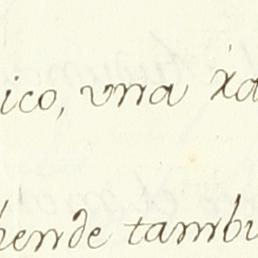 ico, vna xa
hende tambu